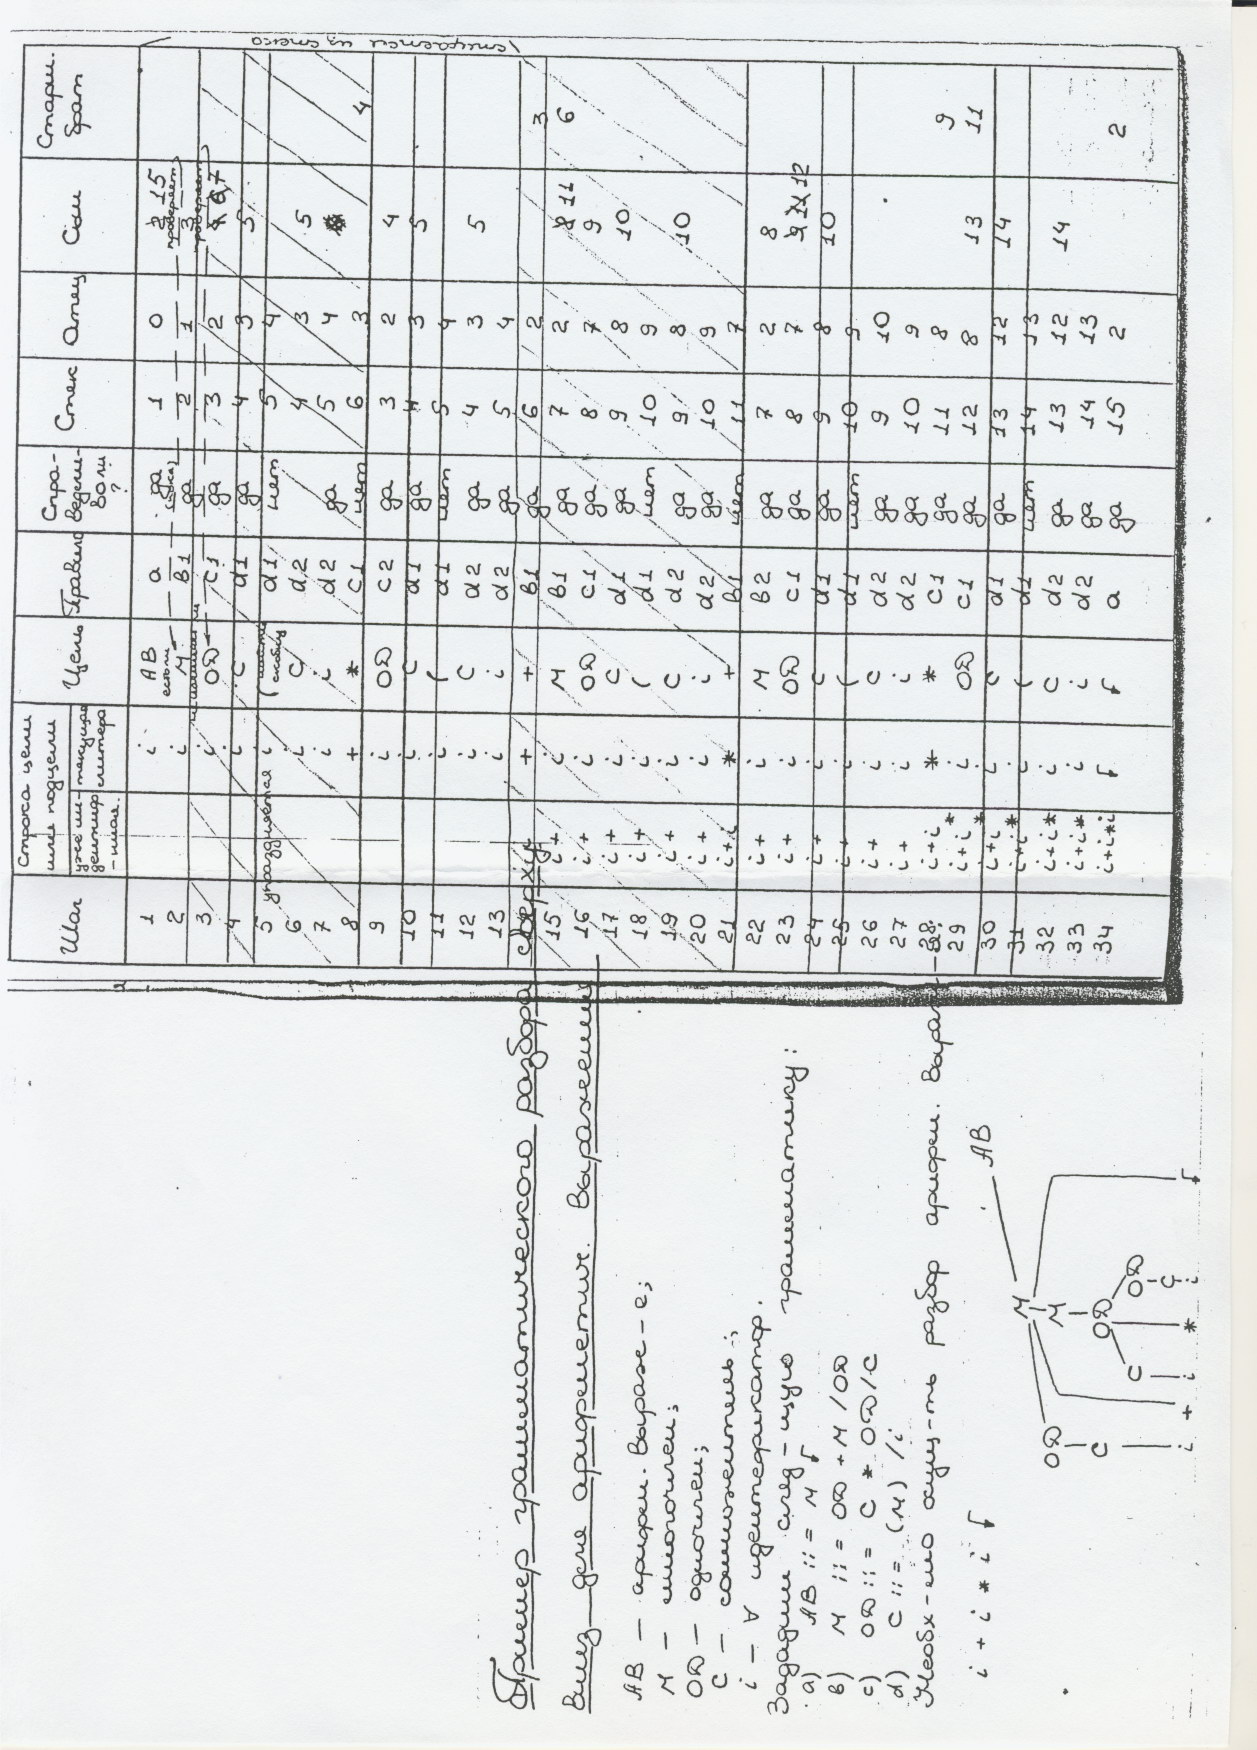 Пример грамматического разбора сверху
вниз для арифметич. выражений
АВ — арифм. выраж-е;
М — многочлен;
ОД — одночлен;
С — сомножитель;
i — ∀ идентификатор.
Зададим след-щую грамматику:
а) АВ ::= М
в) М ::= ОД + М / ОД
с) ОД ::= С * ОД / С
d) С ::= (М) / i
Необх-мо осущ-ть разбор арифм. выраж-я:
i + i * i
АВ
М
М
ОД ОД ОД
С С С
i + i * i
Шаг
Строка цели или подцели
уже ин-дентиф-нная.
текущая литера
Цель
Правило
Спра-ведли-во ли?
Стек
Отец
Сын
Старш. брат
1 i АВ а да 1 0 2 15
2 i М в1 да 2 1 3
3 i ОД с1 да 3 2 4 6 7
4 i С d1 да 4 3 5
5 i ( d1 нет 5 4
6 i С d2 4 3 5
7 i i d2 да 5 4
8 + * с1 нет 6 3 4
9 i ОД с2 да 3 2 4
10 i С d1 да 4 3 5
11 i ( d1 нет 5 4
12 i С d2 да 4 3 5
13 i i d2 да 5 4
14 + + в1 да 6 2 3
15 i+ i М в1 да 7 2 8 11 6
16 i+ i ОД с1 да 8 7 9
17 i+ i С d1 да 9 8 10
18 i+ i ( d1 нет 10 9
19 i+ i С d2 да 9 8 10
20 i+ i i d2 да 10 9
21 i+i * + в1 нет 11 7
22 i+ i М в2 да 7 2 8
23 i+ i ОД с1 да 8 7 9 11 12
24 i+ i С d1 да 9 8 10
25 i+ i ( d1 нет 10 9
26 i+ i С d2 да 9 10
27 i+ i i d2 да 10 9
28 i+i * * с1 да 11 8 9
29 i+i* i ОД с1 да 12 8 13 11
30 i+i* i С d1 да 13 12 14
31 i+i* i ( d1 нет 14 13
32 i+i* i С d2 да 13 12 14
33 i+i* i i d2 да 14 13
34 i+i*i а да 15 2 2